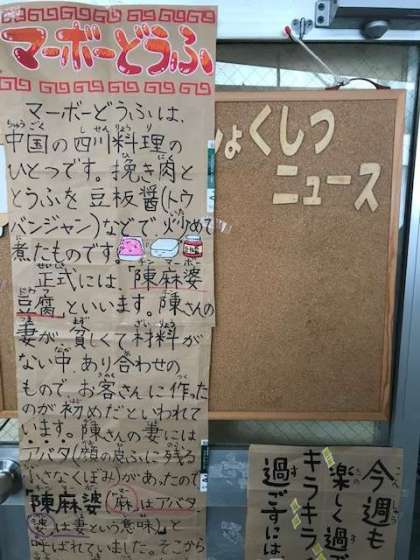 マーボーどうふ
マーボーどうふは、
中国の四川料理の
ひとつです。挽き肉と
とうふを豆板醤(トウ
バンジャン)などで炒めて
煮たものです
正式には、「陳麻婆
豆腐」といいます。陳さんの
妻が、貧しくて材料が
ない中、あり合わせの
もので、お客さんに作った
のが初めだといわれて
います。陳さんの妻には
アバタ(顔の皮ふに残る
小さなくぼみ)があったので
陳麻婆(「麻」はアバタ、
「婆」は妻という意味)と
呼ばれていました。そこから
ょくしつ
ニュース
今週も
楽しく過
キラキラ
過ごすには